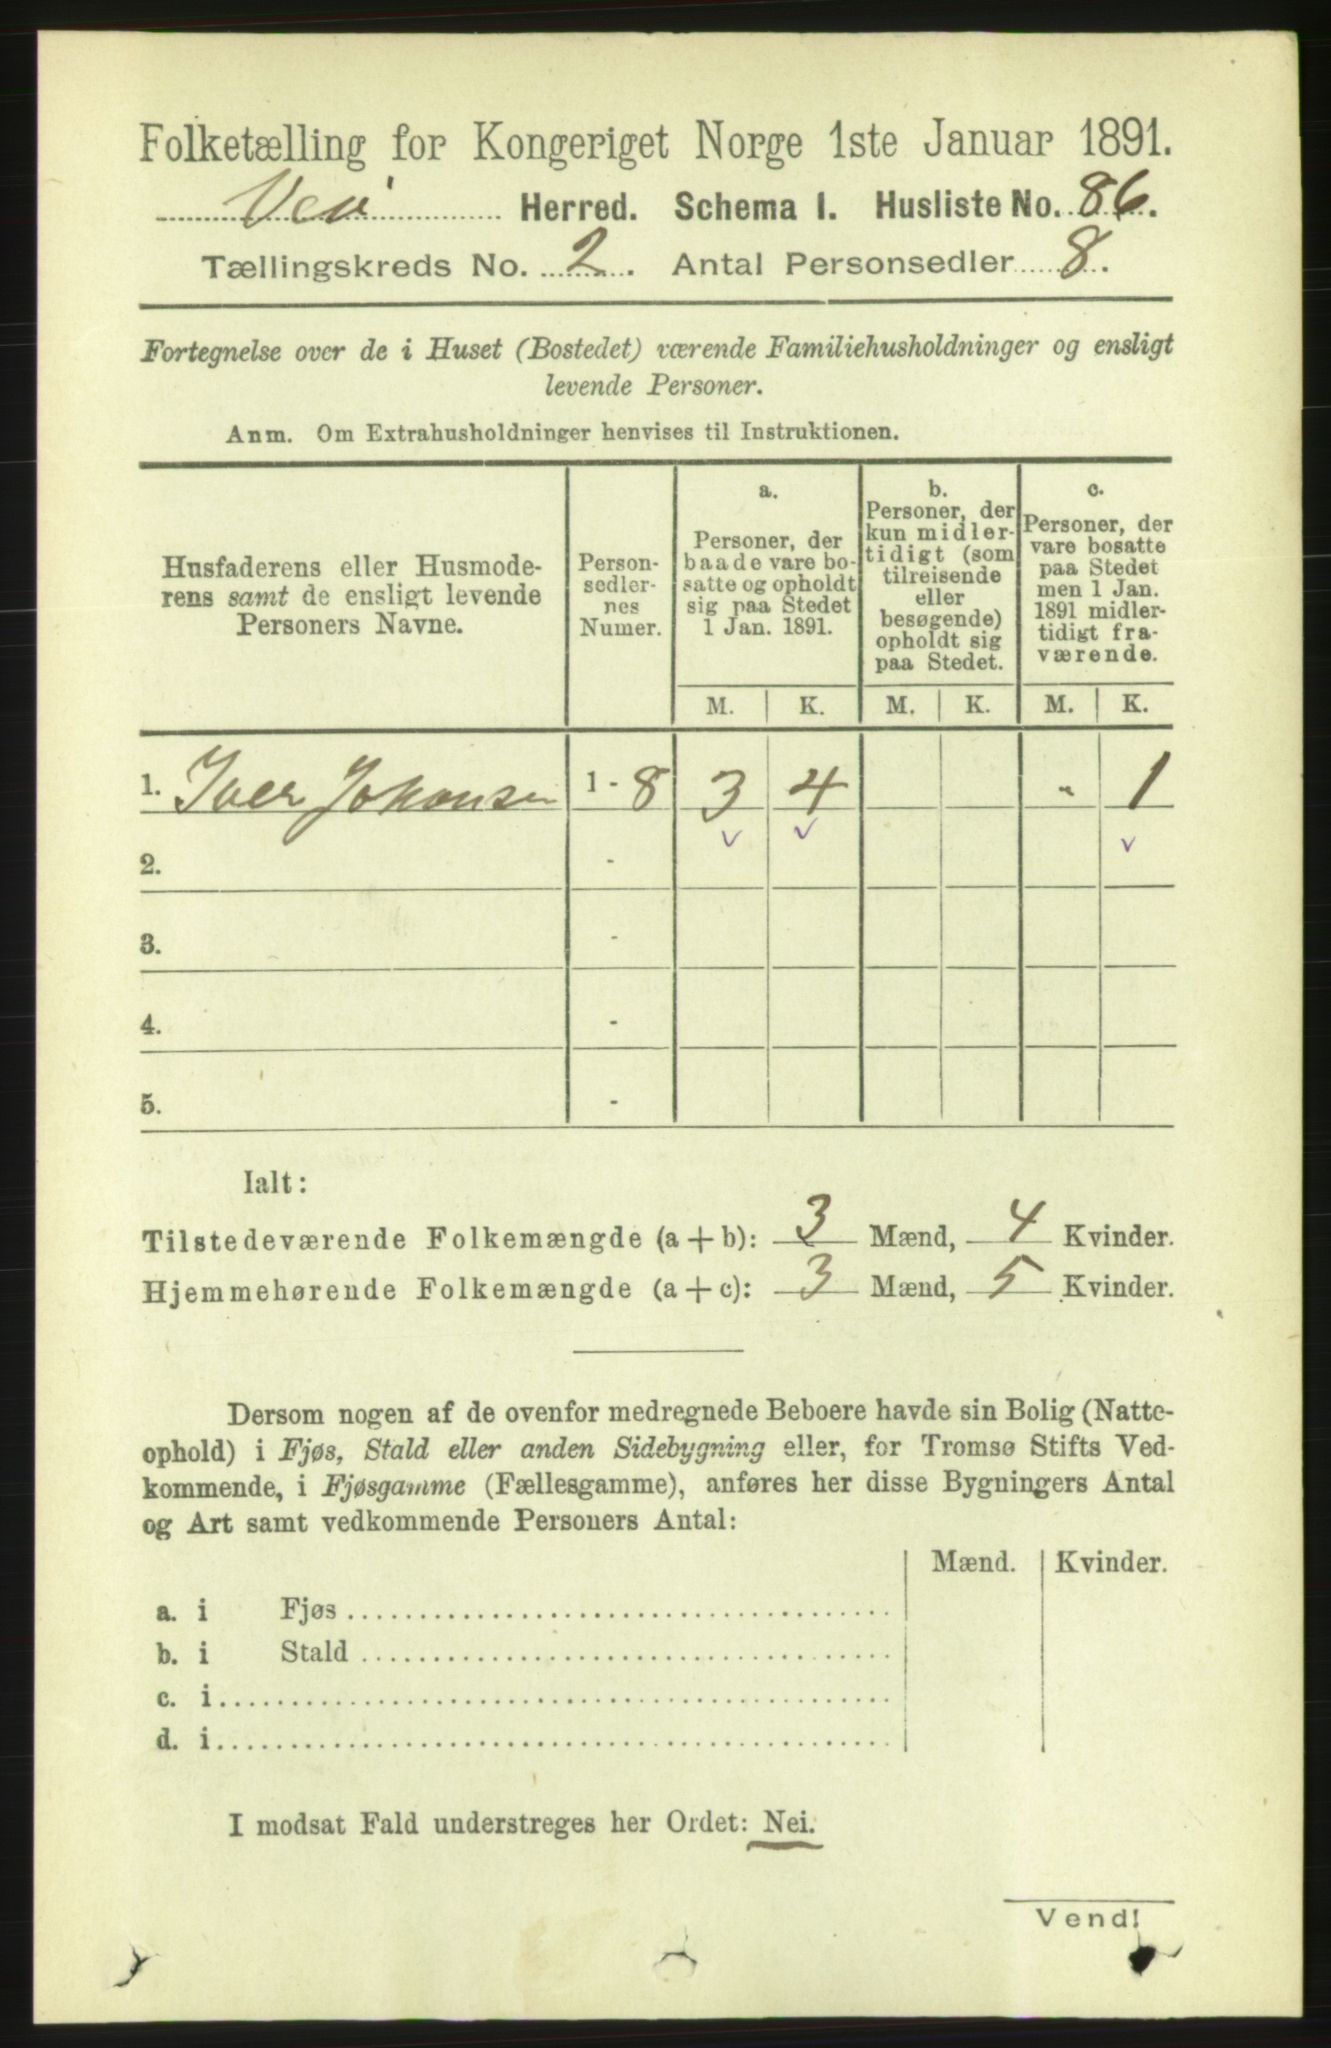 Folketælling for Kongeriget Norge 1ste Januar 1891.
Veø Herred. Schema 1. Husliste No. 86.
Tællingskreds No. 2. Antal Personsedler 8.
Fortegnelse over de i Huset (Bostedet) værende Familiehusholdninger og ensligt
levende Personer.
Anm. Om Extrahusholdninger henvises til Instruktionen.
Husfaderens eller Husmode-
rens samt de ensligt levende
Personers Navne.
Person-
sedler-
nes
Numer.
a.
Personer, der
baade vare bo-
satte og opholdt
sig paa Stedet
1 Jan. 1891.
b.
Personer, der
kun midler-
tidigt (som
tilreisende
eller
besøgende)
opholdt sig
paa Stedet.
c.
Personer, der
vare bosatte
paa Stedet
men 1 Jan.
1891 midler-
tidigt fra-
værende.
M. K. M. K. M. K.
1. Iver Johansen 1 - 8 3 4 - 1
2. -
3. -
4. -
5. -
Ialt:
Tilstedeværende Folkemængde (a + b): 3 Mænd, 4 Kvinder.
Hjemmehørende Folkemængde (a + c): 3 Mænd, 5 Kvinder.
Dersom nogen af de ovenfor medregnede Beboere havde sin Bolig (Natte-
ophold) i Fjøs, Stald eller anden Sidebygning eller, for Tromsø Stifts Ved-
kommende, i Fjøsgamme (Fællesgamme), anføres her disse Bygningers Antal
og Art samt vedkommende Personers Antal:
Mænd. Kvinder.
a. i Fjøs
b. i Stald
c. i
d. i
I modsat Fald understreges her Ordet: Nei.
Vend!